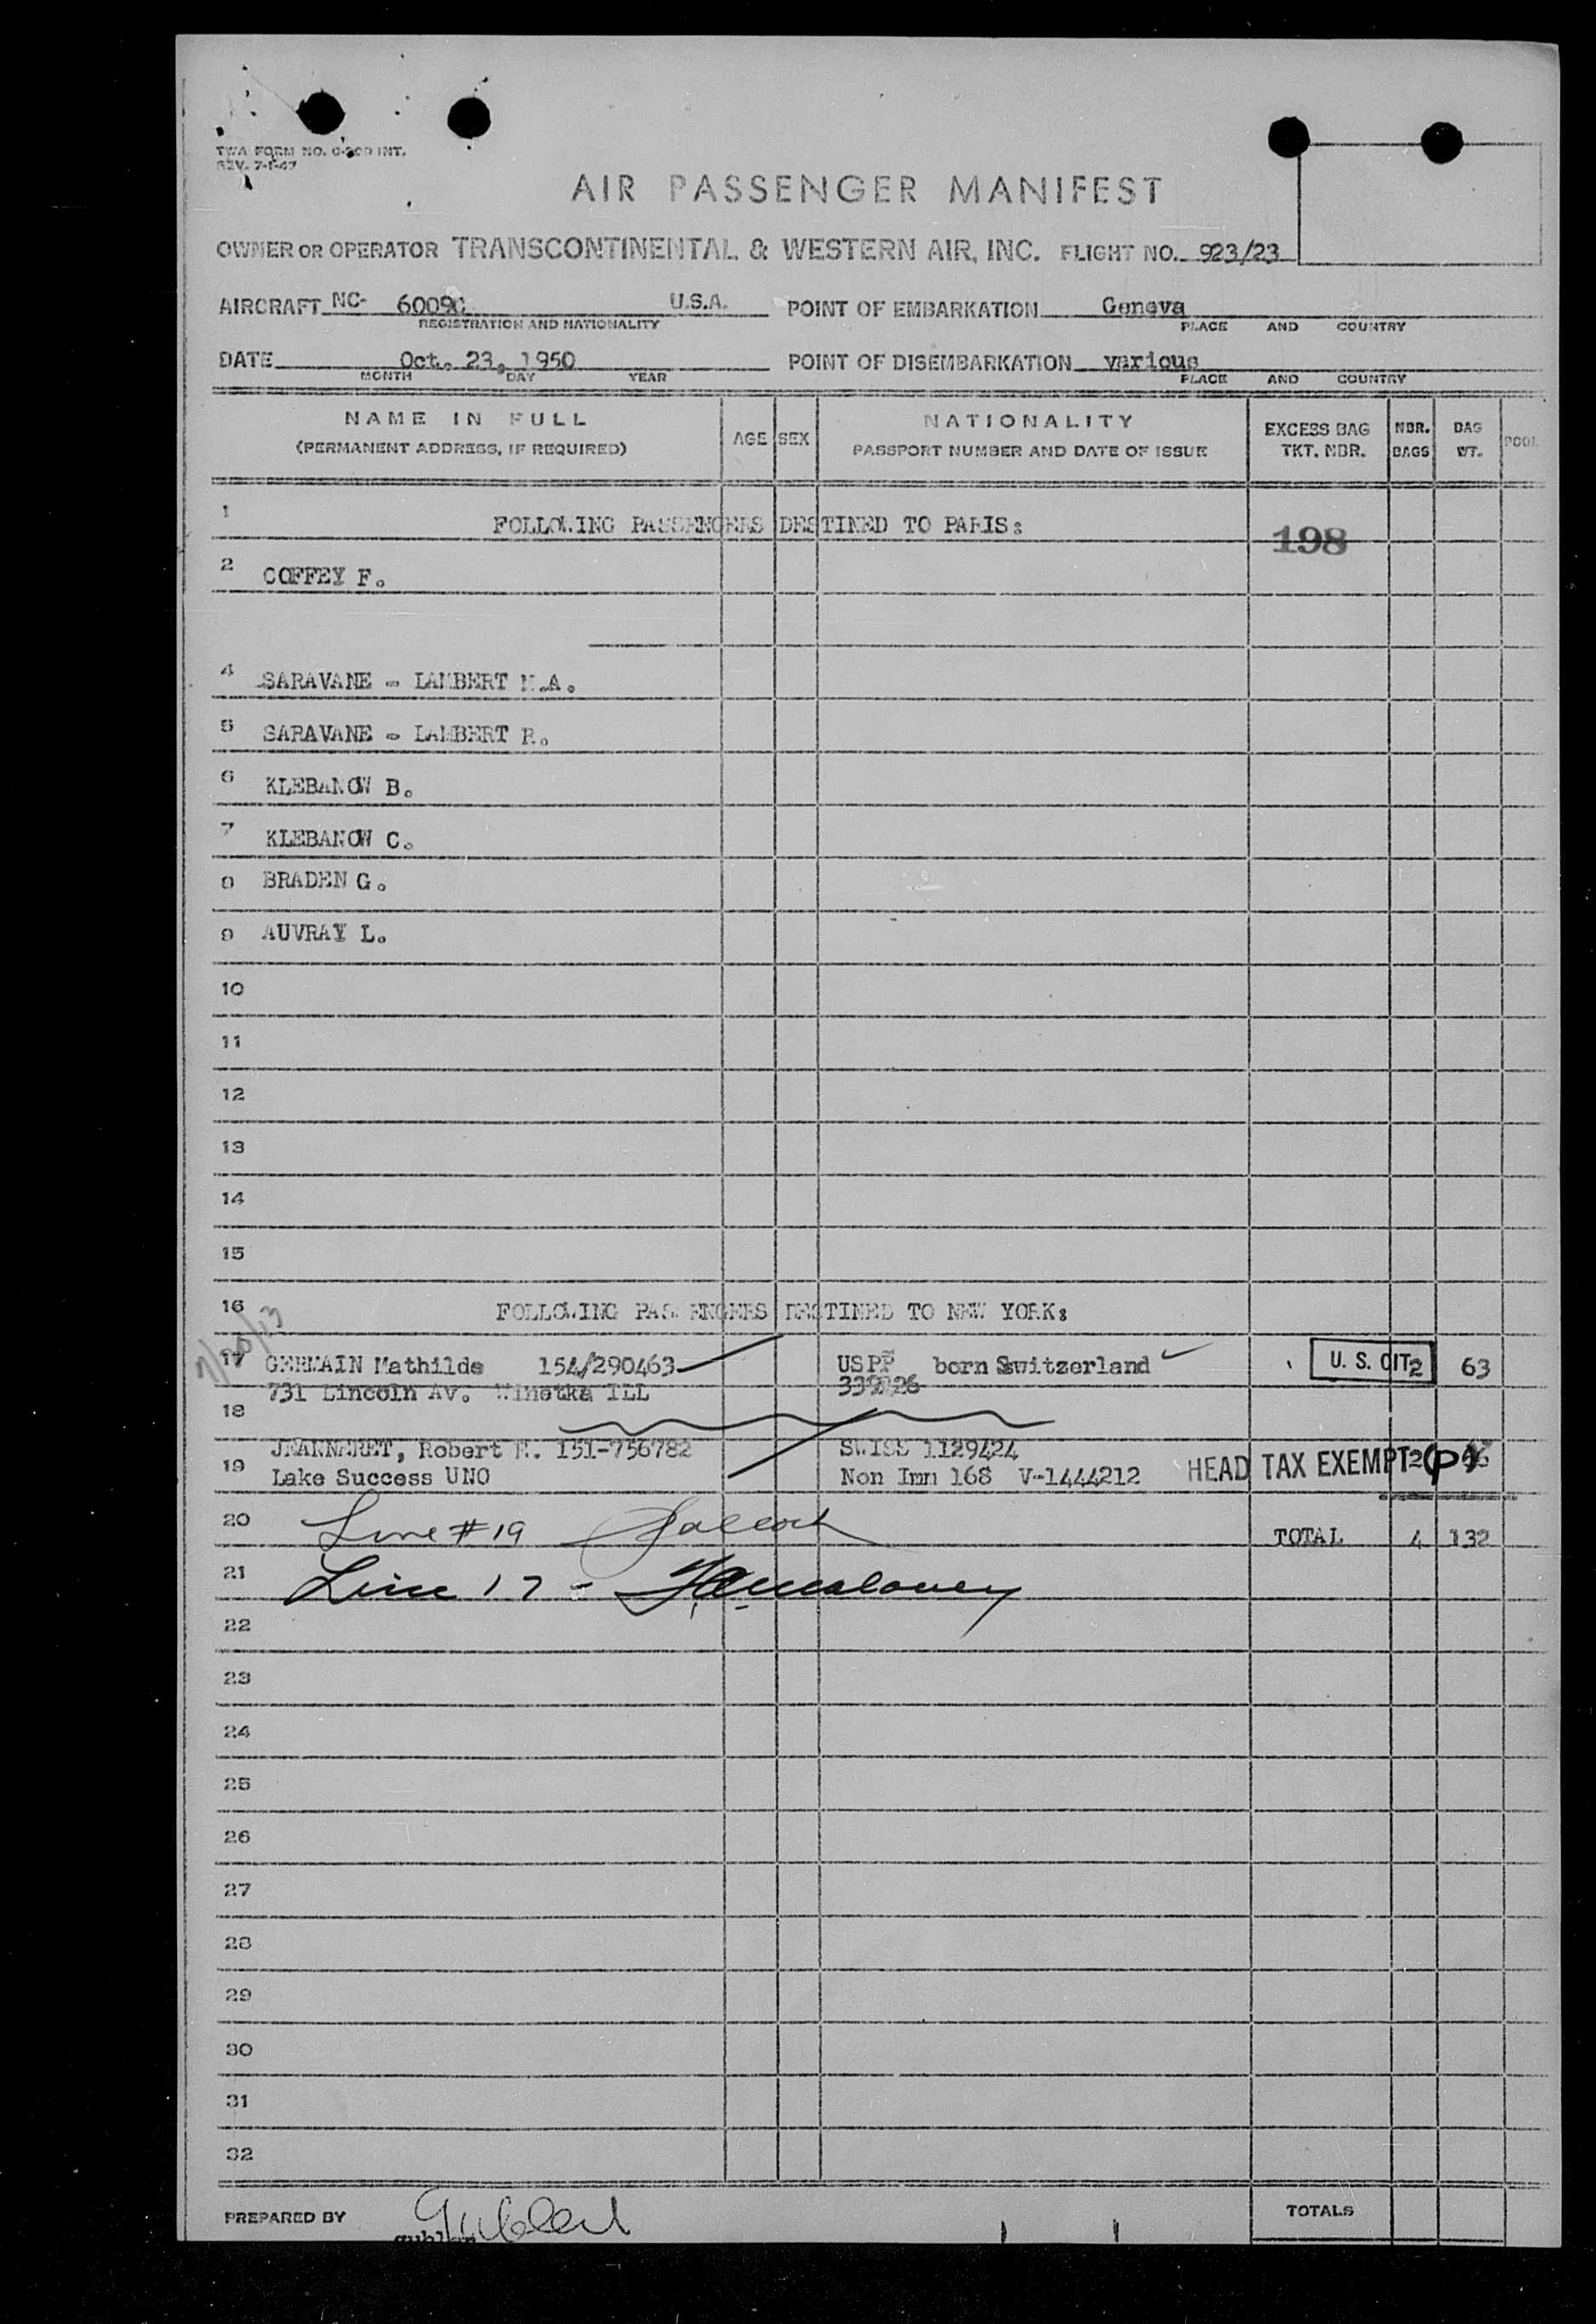 TWA FORM NO. INT.
REV. 7-1-47
AIR PASSENGER MANIFEST
OWNER OR OPERATOR TRANSCONTINENTAL & WESTERN AIR, INC. FLIGHT NO. 923/23
AIRCRAFT NC- 6009 U.S.A. POINT OF EMBARKATION Geneva
REGISTRATION AND NATIONALITY PLACE AND COUNTRY
DATE Oct. 23, 1950 POINT OF DISEMBARKATION various
MONTH DAY YEAR PLACE AND COUNTRY
NAME IN FULL
(PERMANENT ADDRESS, IF REQUIRED)
AGE SEX
NATIONALITY
PASSPORT NUMBER AND DATE OF ISSUE
EXCESS BAG
TKT. NBR.
NBR.
BAGS
BAG
WT.
POOL
1 FOLLOWING PASSENGERS DESTINED TO PARIS:
198
2 COFFEY F.
4 SARAVANE - LAMBERT M.A.
5 SARAVANE - LAMBERT R.
6 KLEBANOW B.
7 KLEBANOW C.
8 BRADEN G.
9 AUVRAY L.
10
11
12
13
14
15
16 FOLLOWING PASSENGERS DESTINED TO NEW YORK:
17 GERMAIN Mathilde 154/290463 USPP born Switzerland U. S. CIT 2 63
731 Lincoln Av. Winetka ILL
18
JEANNERET, Robert 151-756782 SWISS 1129424
19 Lake Success UNO Non Imm 168 V-1444212 HEAD TAX EXEMPT 2 (P)
20 Line #19 TOTAL 4 132
21 Line 17 -
22
23
24
25
26
27
28
29
30
31
32
PREPARED BY TOTALS